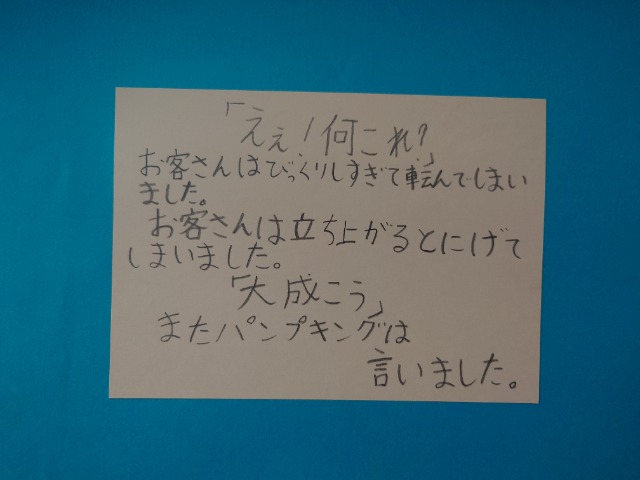 「えぇ！何これ？」
お客さんはびっくりしすぎて転んでしまい
ました。
お客さんは立ち上がるとにげて
しまいました。
「大成こう」
またパンプキングは
言いました。